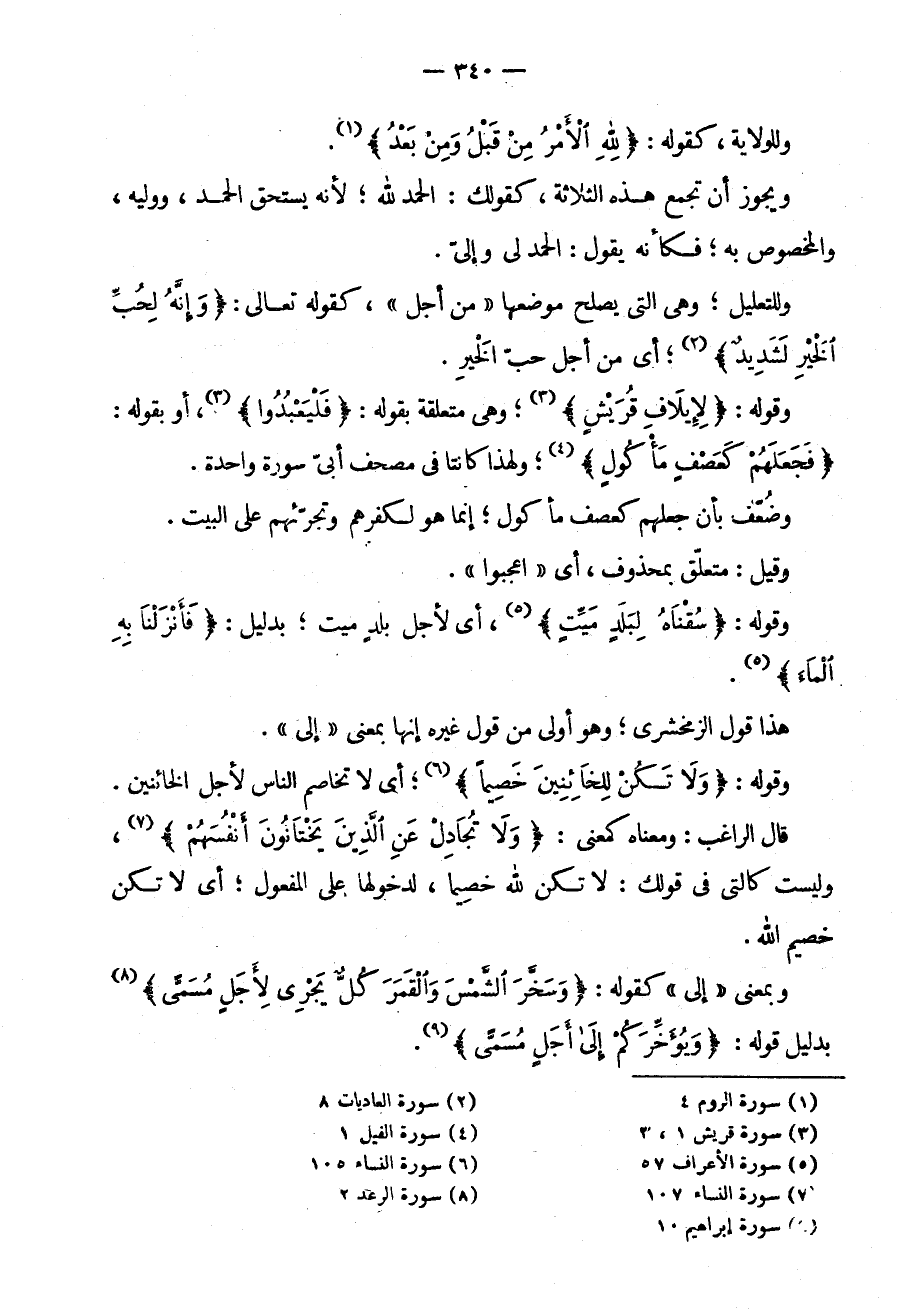 — ٣٤٠ —
وللولاية ، كقوله : ﴿ لِلهِ ٱلْأَمْرُ مِنْ قَبْلُ وَمِنْ بَعْدُ ﴾ (١).
ويجوز أن تجمع هذه الثلاثة ، كقولك : الحمد لله ؛ لأنه يستحق الحمد ، ووليه ،
والمخصوص به ؛ فكأنه يقول : الحمد لى وإلىّ .
وللتعليل ؛ وهى التى يصلح موضعها « من أجل » ، كقوله تعالى : ﴿ وَإِنَّهُ لِحُبِّ
ٱلْخَيْرِ لَشَدِيدٌ ﴾ (٢) ؛ أى من أجل حبّ الخَيرِ .
وقوله : ﴿ لِإِيلَافِ قُرَيْشٍ ﴾ (٣) ؛ وهى متعلقة بقوله : ﴿ فَلْيَعْبُدُوا ﴾ (٣)، أو بقوله :
﴿ فَجَعَلَهُمْ كَعَصْفٍ مَأْكُولٍ ﴾ (٤) ؛ ولهذا كانتا فى مصحف أبىّ سورة واحدة .
وضُعّف بأن جعلهم كعصف مأكول ؛ إنما هو لكفرهم وتجرّئهم على البيت .
وقيل : متعلّق بمحذوف ، أى « اعجبوا » .
وقوله : ﴿ سُقْنَاهُ لِبَلَدٍ مَيِّتٍ ﴾ (٥) ، أى لأجل بلدٍ ميت ؛ بدليل : ﴿ فَأَنْزَلْنَا بِهِ
ٱلْمَاءَ ﴾ (٥) .
هذا قول الزمخشرى ؛ وهو أولى من قول غيره إنها بمعنى « إلى » .
وقوله : ﴿ وَلَا تَكُنْ لِلخَائِنِينَ خَصِيماً ﴾ (٦) ؛ أى لا تخاصم الناس لأجل الخائنين .
قال الراغب : ومعناه كمعنى : ﴿ وَلَا تُجَادِلْ عَنِ ٱلَّذِينَ يَخْتَانُونَ أَنْفُسَهُمْ ﴾ (٧) ،
وليست كالتى فى قولك : لا تكن لله خصيما ، لدخولها على المفعول ؛ أى لا تكن
خصيم الله .
وبمعنى « إلى » كقوله : ﴿ وَسَخَّرَ ٱلشَّمْسَ وَٱلْقَمَرَ كُلٌّ يَجْرِى لِأَجَلٍ مُسَمًّى ﴾ (٨)
بدليل قوله : ﴿ وَيُؤَخِّرَكُمْ إِلَىٰ أَجَلٍ مُسَمًّى ﴾ (٩).
(١) سورة الروم ٤ (٢) سورة العاديات ٨
(٣) سورة قريش ١ ، ٣ (٤) سورة الفيل ١
(٥) سورة الأعراف ٥٧ (٦) سورة النساء ١٠٥
٧) سورة النساء ١٠٧ (٨) سورة الرعد ٢
سورة إبراهيم ١٠